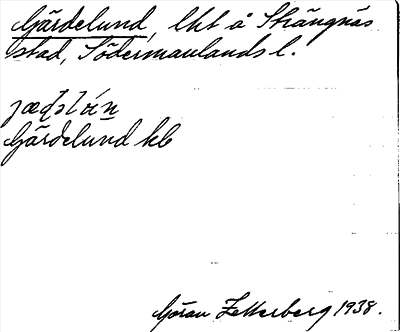 Gärdelund, lht å Strängnäs
stad, Södermanlands l.
Gärdelund kb
Göran Zetterberg 1938.